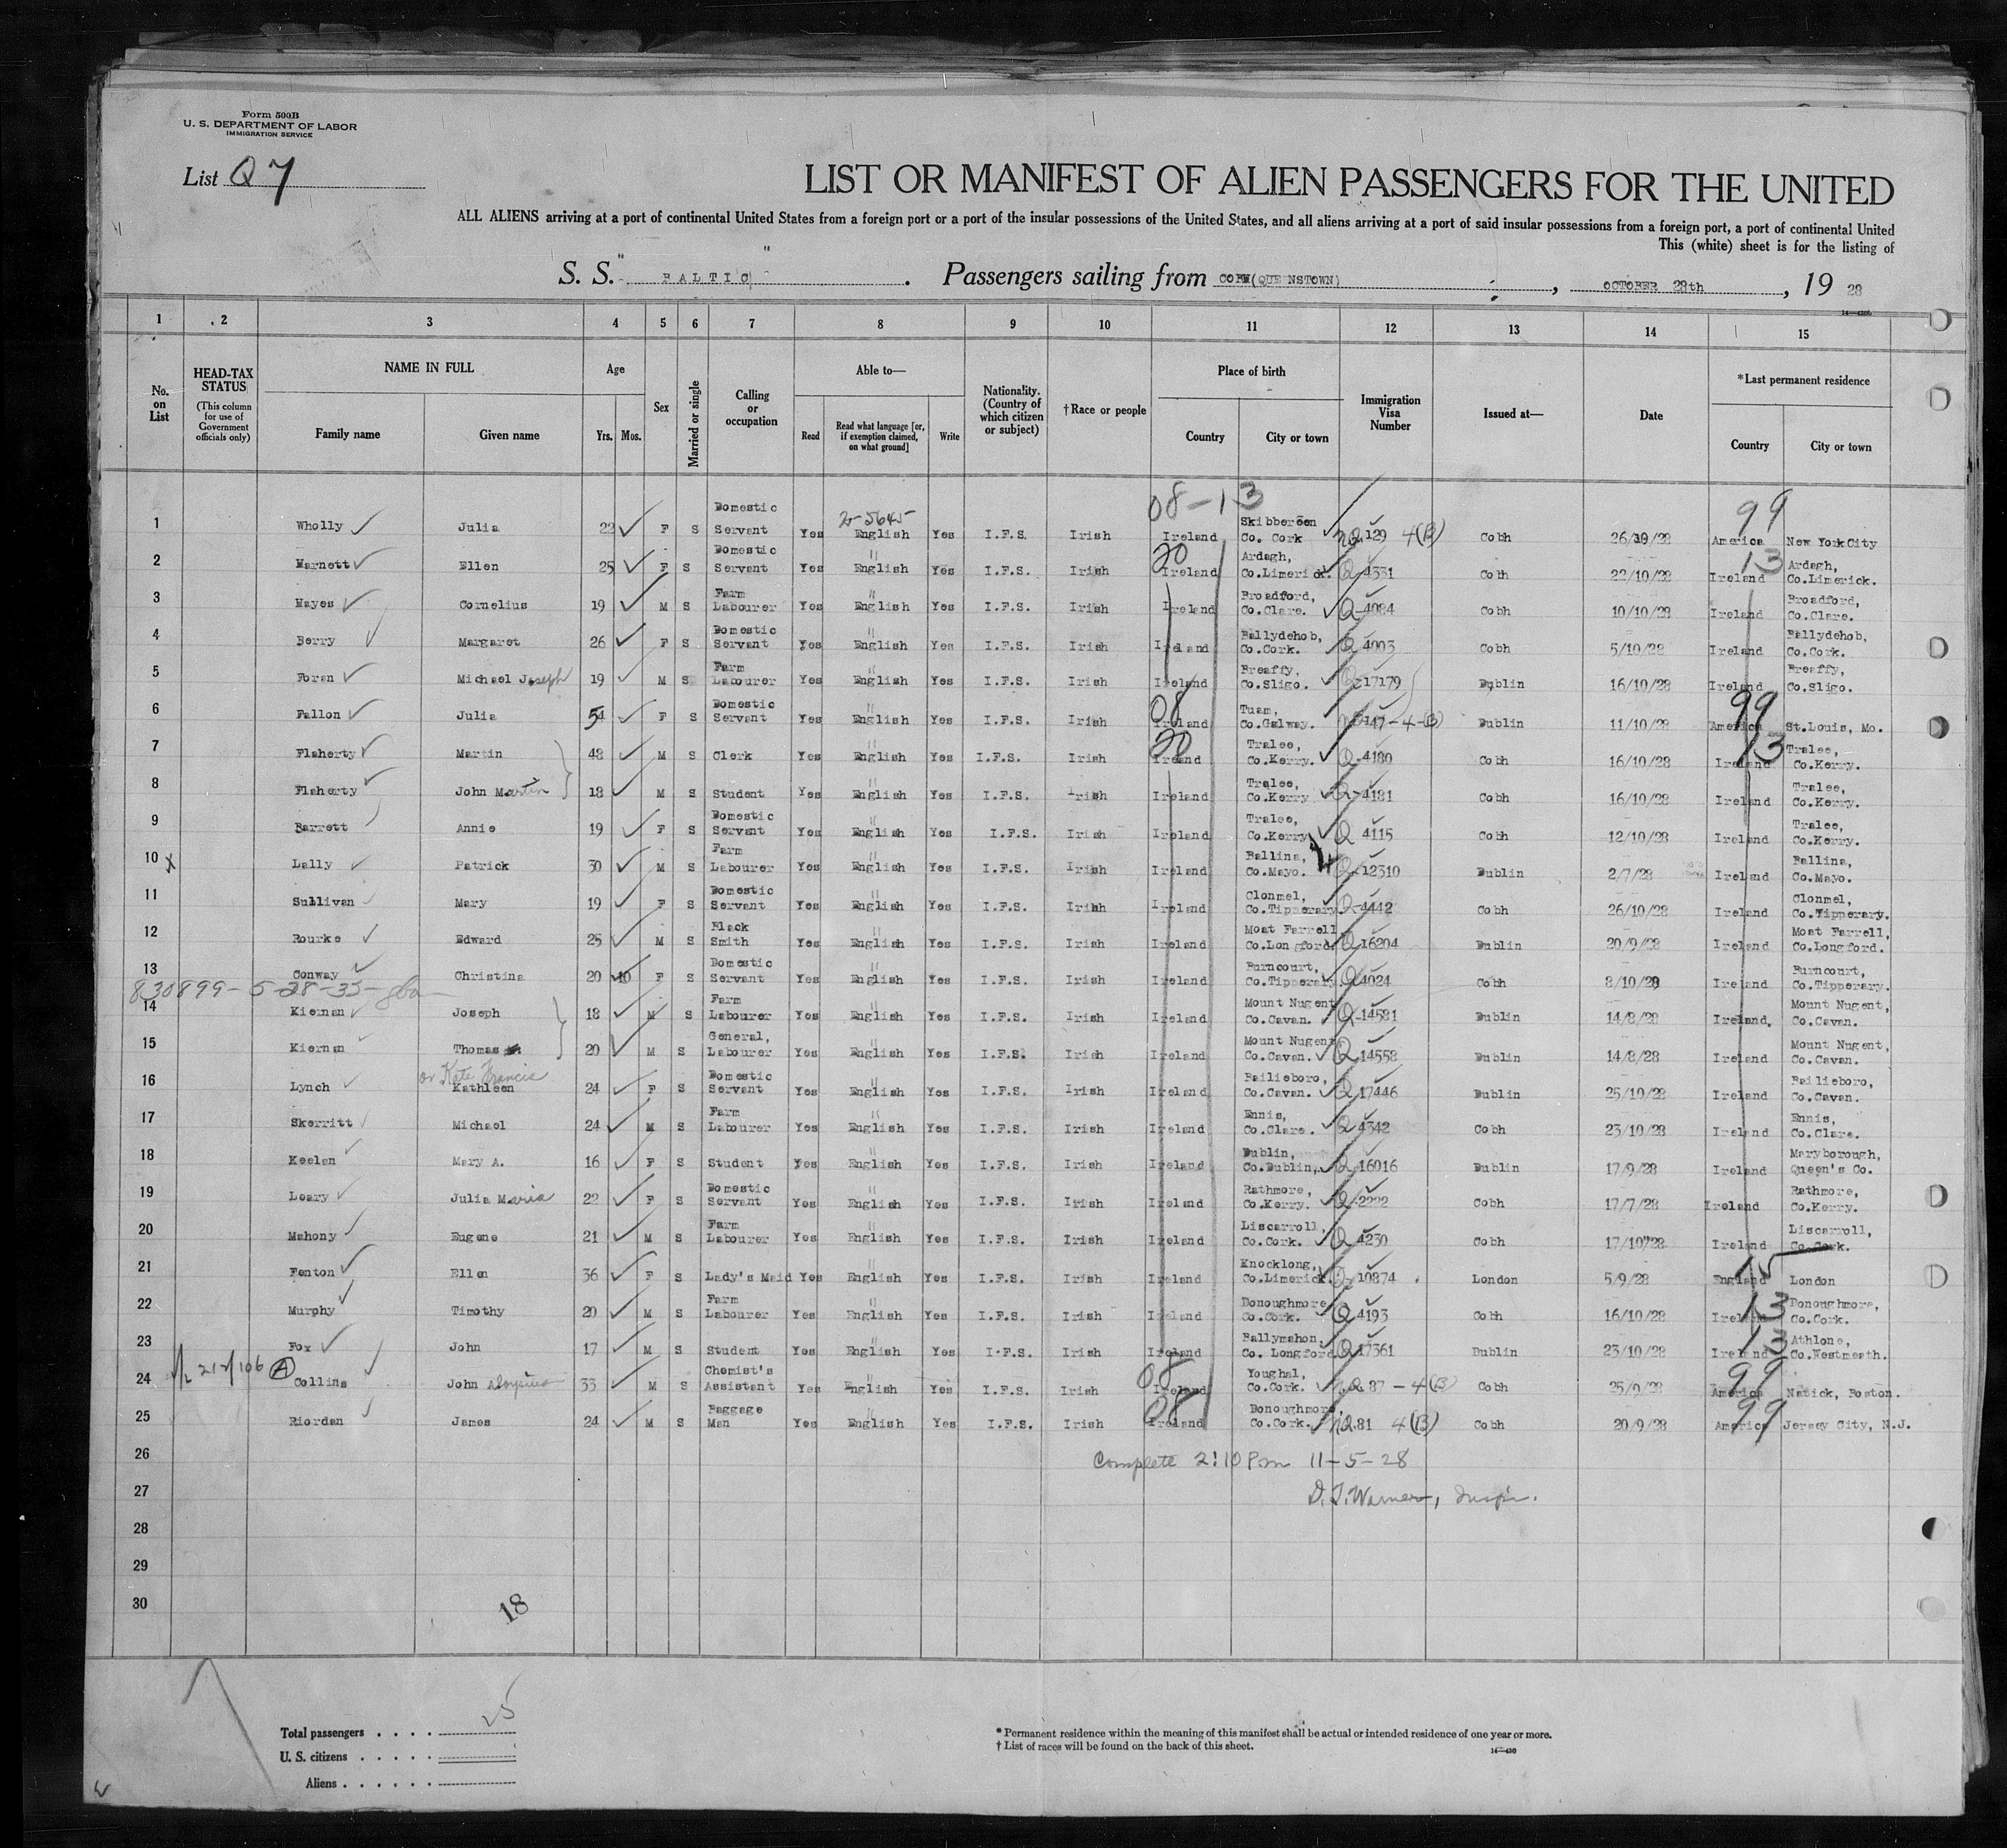 Form 500B
U. S. DEPARTMENT OF LABOR
IMMIGRATION SERVICE
List Q 7
LIST OR MANIFEST OF ALIEN PASSENGERS FOR THE UNITED
ALL ALIENS arriving at a port of continental United States from a foreign port or a port of the insular possessions of the United States, and all aliens arriving at a port of said insular possessions from a foreign port, a port of continental United
This (white) sheet is for the listing of
S. S. " BALTIC " . Passengers sailing from COBH(QUEENSTOWN) , OCTOBER 28th , 19 28
1 2 3 4 5 6 7 8 9 10 11 12 13 14 15
No. on List HEAD-TAX STATUS (This column for use of Government officials only) NAME IN FULL Family name Given name Age Yrs. Mos. Sex Married or single Calling or occupation Able to— Read Read what language [or, if exemption claimed, on what ground] Write Nationality. (Country of which citizen or subject) †Race or people Place of birth Country City or town Immigration Visa Number Issued at— Date *Last permanent residence Country City or town
08-13 99
1 Wholly Julia 22 F S Domestic Servant Yes 2-5645 English Yes I.F.S. Irish Ireland Skibbereen Co. Cork 129 4(B) Cobh 26/10/28 America New York City
2 Harnett Ellen 25 F S Domestic Servant Yes English Yes I.F.S. Irish 20 Ireland Ardagh, Co.Limerick. Q 4331 Cobh 22/10/28 13 Ireland Ardagh, Co.Limerick.
3 Hayes Cornelius 19 M S Farm Labourer Yes English Yes I.F.S. Irish Ireland Broadford, Co.Clare. Q 4084 Cobh 10/10/28 Ireland Broadford, Co.Clare.
4 Berry Margaret 26 F S Domestic Servant Yes English Yes I.F.S. Irish Ireland Ballydehob, Co.Cork. Q 4003 Cobh 5/10/28 Ireland Ballydehob, Co.Cork.
5 Foran Michael Joseph 19 M S Farm Labourer Yes English Yes I.F.S. Irish Ireland Breaffy, Co.Sligo. Q 17179 Dublin 16/10/28 Ireland Breaffy, Co.Sligo.
6 Fallon Julia 54 F S Domestic Servant Yes English Yes I.F.S. Irish 08 Ireland Tuam, Co.Galway. 147-4-(B) Dublin 11/10/28 99 America St.Louis, Mo.
7 Flaherty Martin 48 M S Clerk Yes English Yes I.F.S. Irish 20 Ireland Tralee, Co.Kerry. Q 4180 Cobh 16/10/28 13 Ireland Tralee, Co.Kerry.
8 Flaherty John Martin 18 M S Student Yes English Yes I.F.S. Irish Ireland Tralee, Co.Kerry Q 4181 Cobh 16/10/28 Ireland Tralee, Co.Kerry.
9 Barrett Annie 19 F S Domestic Servant Yes English Yes I.F.S. Irish Ireland Tralee, Co.Kerry Q 4115 Cobh 12/10/28 Ireland Tralee, Co.Kerry.
10 X Lally Patrick 30 M S Farm Labourer Yes English Yes I.F.S. Irish Ireland Ballina, Co.Mayo. Q 12310 Dublin 2/7/28 Ireland Ballina, Co.Mayo.
11 Sullivan Mary 19 F S Domestic Servant Yes English Yes I.F.S. Irish Ireland Clonmel, Co.Tipperary. Q 4442 Cobh 26/10/28 Ireland Clonmel, Co.Tipperary.
12 Rourke Edward 25 M S Black Smith Yes English Yes I.F.S. Irish Ireland Moat Farrell Co.Longford. Q 16204 Dublin 20/9/28 Ireland Moat Farrell, Co.Longford.
13 Conway Christina 20 10 F S Domestic Servant Yes English Yes I.F.S. Irish Ireland Burncourt, Co.Tipperary Q 4024 Cobh 8/10/28 Ireland Burncourt, Co.Tipperary.
830899-5-28-35-
14 Kiernan Joseph 18 M S Farm Labourer Yes English Yes I.F.S. Irish Ireland Mount Nugent Co.Cavan. Q 14581 Dublin 14/8/28 Ireland, Mount Nugent, Co.Cavan.
15 Kiernan Thomas 20 M S General, Labourer Yes English Yes I.F.S. Irish Ireland Mount Nugent Co.Cavan. Q 14558 Dublin 14/8/28 Ireland Mount Nugent, Co.Cavan.
or Kate Francis
16 Lynch Kathleen 24 F S Domestic Servant Yes English Yes I.F.S. Irish Ireland Bailieboro, Co.Cavan. Q 17446 Dublin 25/10/28 Ireland Bailieboro, Co.Cavan.
17 Skerritt Michael 24 M S Farm Labourer Yes English Yes I.F.S. Irish Ireland Ennis, Co.Clare. Q 4342 Cobh 23/10/28 Ireland Ennis, Co.Clare.
18 Keelan Mary A. 16 F S Student Yes English Yes I.F.S. Irish Ireland Dublin, Co.Dublin, Q 16016 Dublin 17/9/28 Ireland Maryborough, Queen's Co.
19 Leary Julia Maria 22 F S Domestic Servant Yes English Yes I.F.S. Irish Ireland Rathmore, Co.Kerry. Q 2222 Cobh 17/7/28 Ireland Rathmore, Co.Kerry.
20 Mahony Eugene 21 M S Farm Labourer Yes English Yes I.F.S. Irish Ireland Liscarroll, Co.Cork. Q 4230 Cobh 17/10/28 Ireland Liscarroll, Co.Cork.
21 Fenton Ellen 36 F S Lady's Maid Yes English Yes I.F.S. Irish Ireland Knocklong, Co.Limerick. Q 10874 London 5/9/28 15 England London
22 Murphy Timothy 20 M S Farm Labourer Yes English Yes I.F.S. Irish Ireland Donoughmore Co.Cork. Q 4193 Cobh 16/10/28 13 Ireland Donoughmore, Co.Cork.
23 Fox John 17 M S Student Yes English Yes I.F.S. Irish Ireland Ballymahon, Co. Longford. Q 17361 Dublin 23/10/28 13 Ireland Athlone, Co.Westmeath.
24 (A) Collins John Aloysius 33 M S Chemist's Assistant Yes English Yes I.F.S. Irish 08 Ireland Youghal, Co.Cork. 87-4(B) Cobh 25/9/28 99 America Natick, Boston.
25 Riordan James 24 M S Baggage Man Yes English Yes I.F.S. Irish 08 Ireland Donoughmore, Co.Cork. 81 4(B) Cobh 20/9/28 99 America Jersey City, N.J.
26 Complete 2:10 Pm 11-5-28
27 D.J. Warner, Inspr.
28
29
30
18
Total passengers . . . . 25
U. S. citizens . . . . .
Aliens . . . . . .
* Permanent residence within the meaning of this manifest shall be actual or intended residence of one year or more.
† List of races will be found on the back of this sheet.
14—430